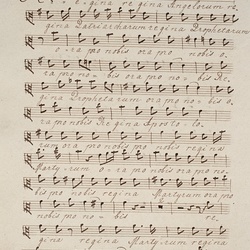 regina Angelorum re
gina Patriarcharum regina Prophetarum
o-ra pro nobis ora pro nobis o.
ra pro no-bis ora pro no-bis Re
gina Prophetarum ora pro nobis o
ra pro nobis Regina Aposto-lo
rum ora pro nobis pro nobis regina
Marty-rum o-ra pro nobis ora pro no
bis pro nobis regina Martyrum ora pro
nobis pro no-bis re
gina regina Marty-rum regina